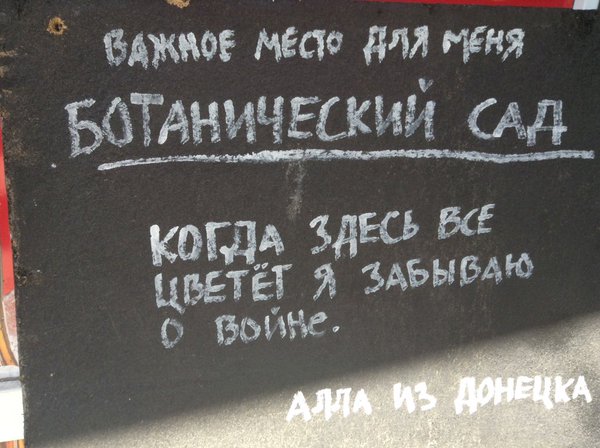 ВАЖНОЕ МЕСТО ДЛЯ МЕНЯ
БОТАНИЧЕСКИЙ САД
КОГДА ЗДЕСЬ ВСЕ
ЦВЕТЁТ Я ЗАБЫВАЮ
О ВОЙНе.
АЛЛА ИЗ ДОНЕЦКА